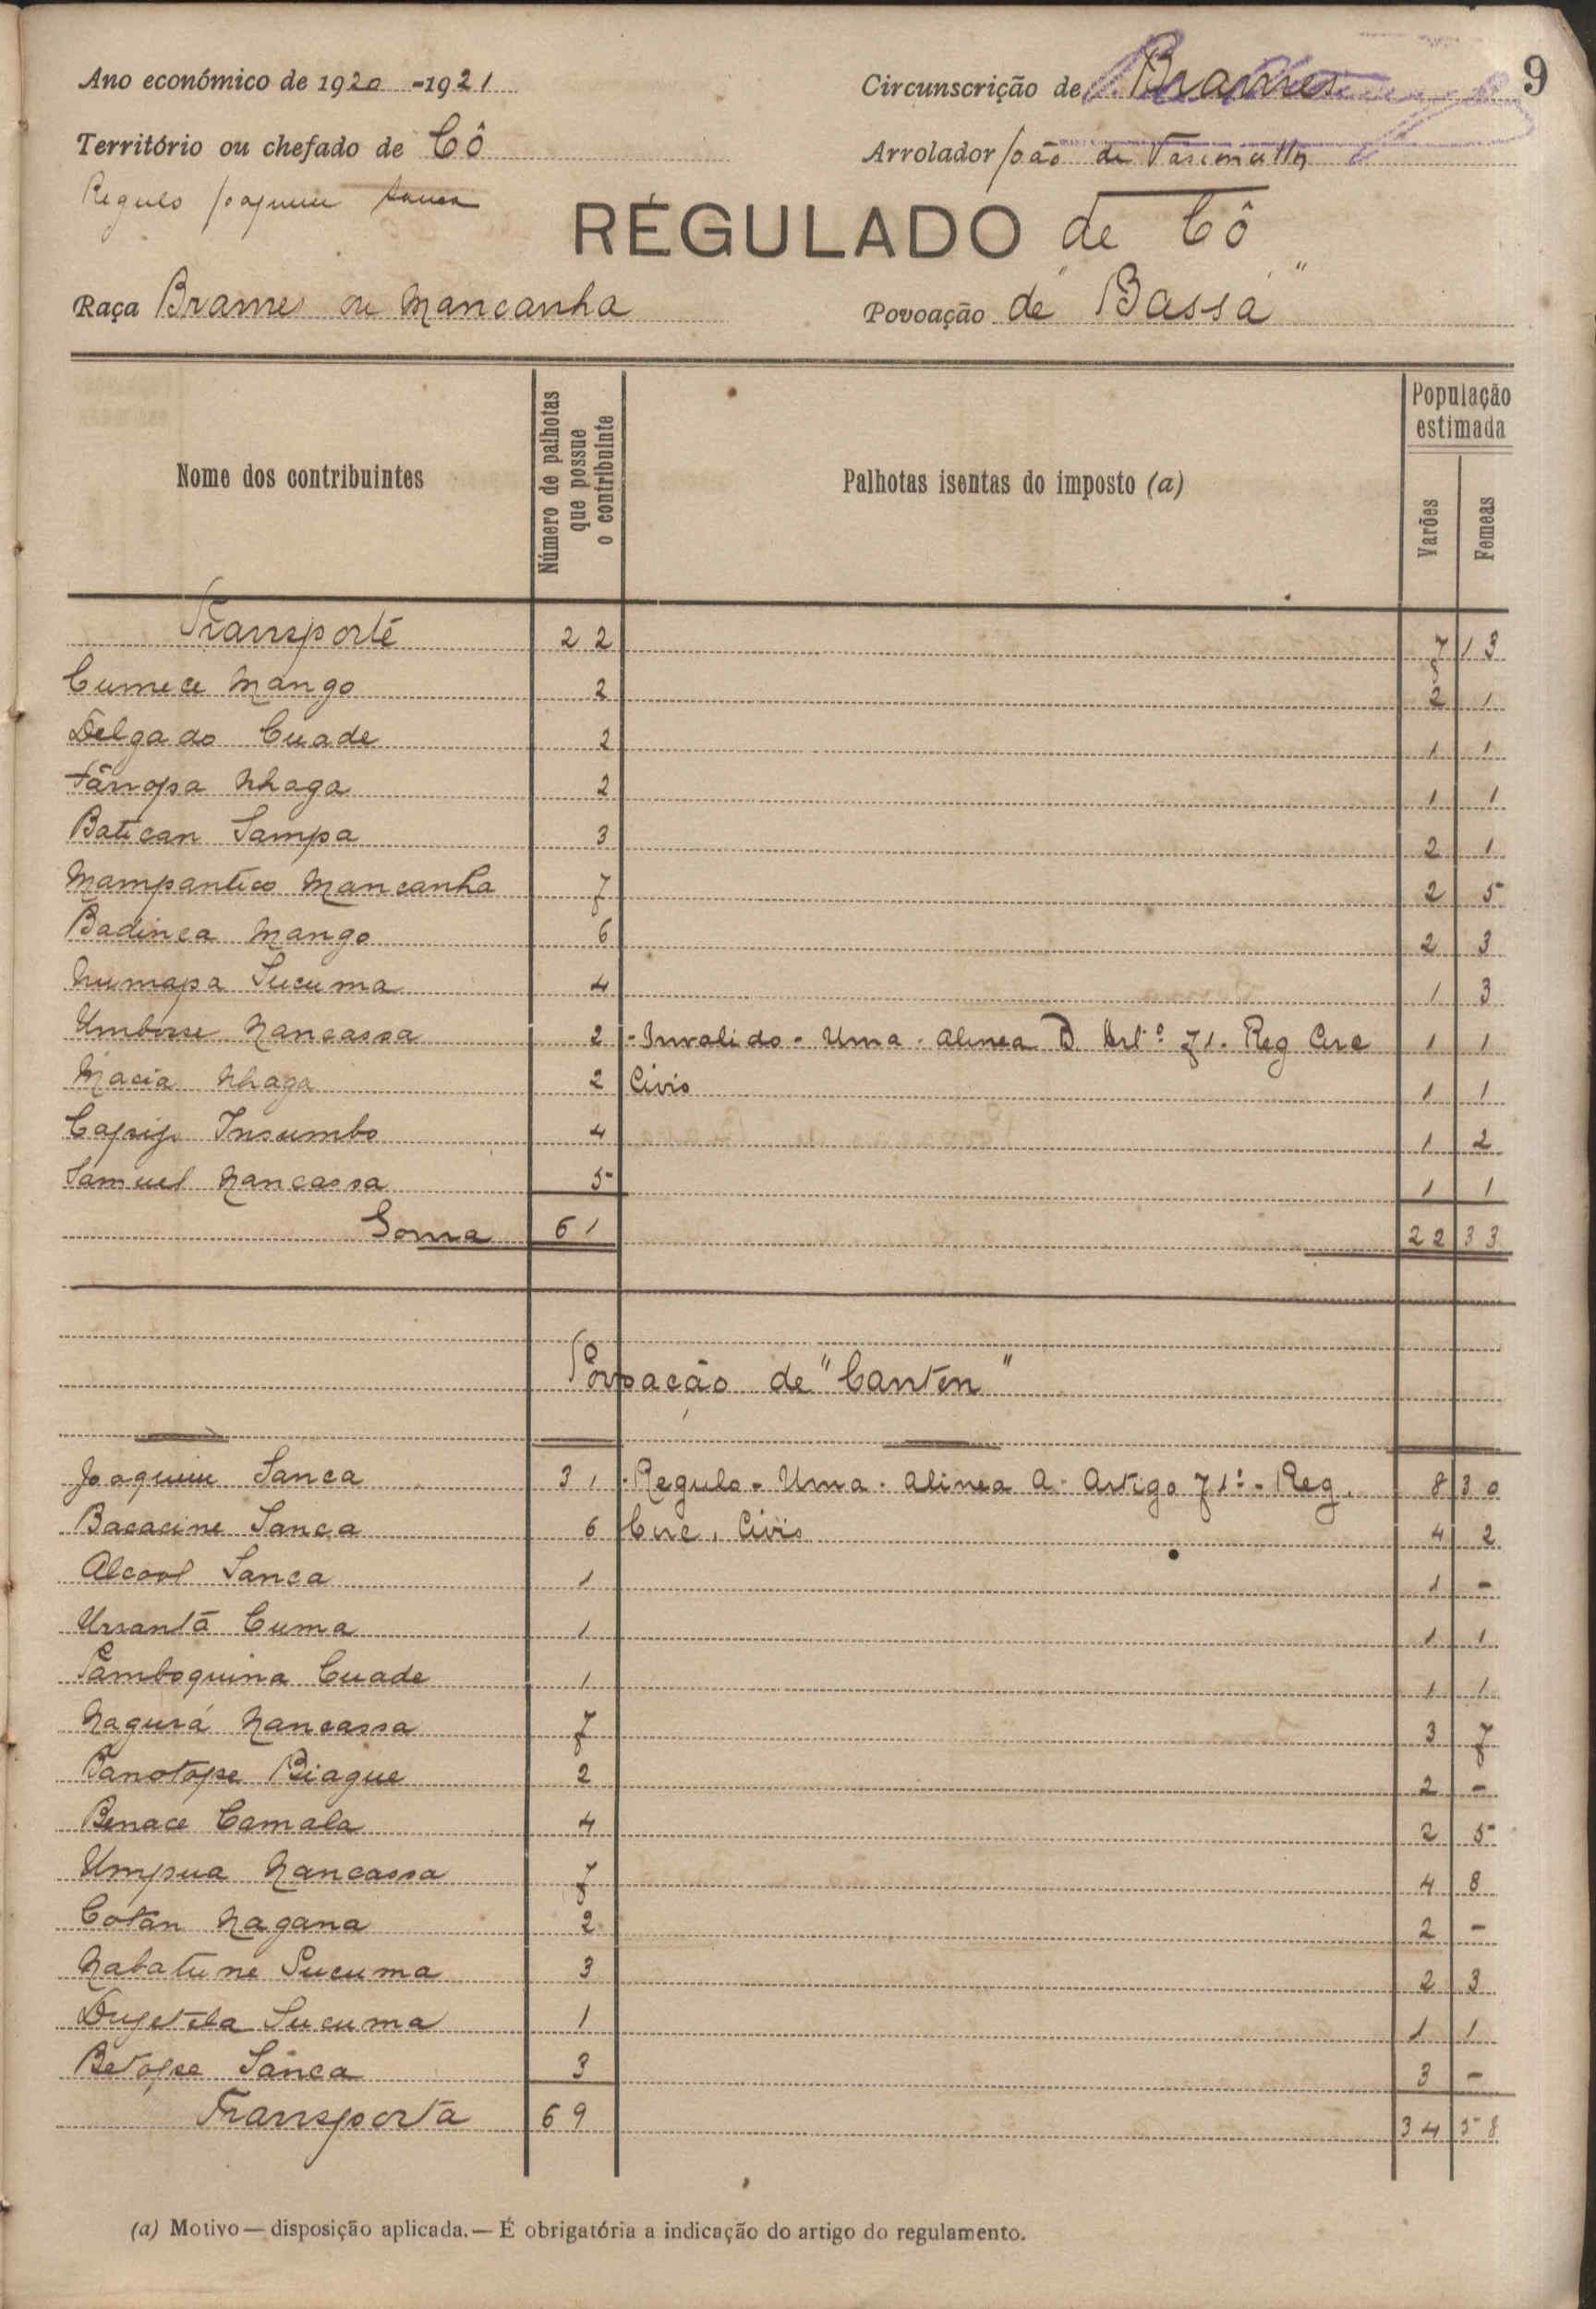 9
Ano económico de 1920-1921
Circunscrição de Brames
Território ou chefado de Cô
Arrolador João de Vasconcellos
Regulo Joaquim Sanca
RÉGULADO de Cô
Raça Brames ou Mancanha
Povoação de "Bassa"
Nome dos contribuintes
Número de palhotas que possue o contribuinte
Palhotas isentas do imposto (a)
População estimada
Varões
Femeas
Transporte 22 7 13
Cumece Mango 2 2 1
Delgado Cuade 2 1 1
Fânopa Nhaga 2 1 1
Batican Sampa 3 2 1
Mampantico Mancanha 7 2 5
Badinca Mango 6 2 3
Numapa Sucuma 4 1 3
Umbosse Nancassa 2 - Invalido - Uma - alinea D Artº 71. Reg Circ 1 1
Macia Nhaga 2 Civis 1 1
Capip Insumbo 4 1 2
Samuel Nancassa 5 1 1
Soma 61 22 33
Povoação de "Canten"
Joaquim Sanca 31 - Regulo - Uma - alinea A - Artigo 71º - Reg. 8 30
Bacacine Sanca 6 Circ. Civis 4 2
Alcool Sanca 1 1 -
Urrantã Cuma 1 1 1
Pamboquina Cuade 1 1 1
Nagurá Nancassa 7 3 7
Banotope Biague 2 2 -
Benace Camala 4 2 5
Umpua Nancassa 7 4 8
Cotan Nagana 2 2 -
Nabatune Sucuma 3 2 3
Dugetela Sucuma 1 1 1
Betope Sanca 3 3 -
Transporta 69 34 58
(a) Motivo — disposição aplicada. — É obrigatória a indicação do artigo do regulamento.